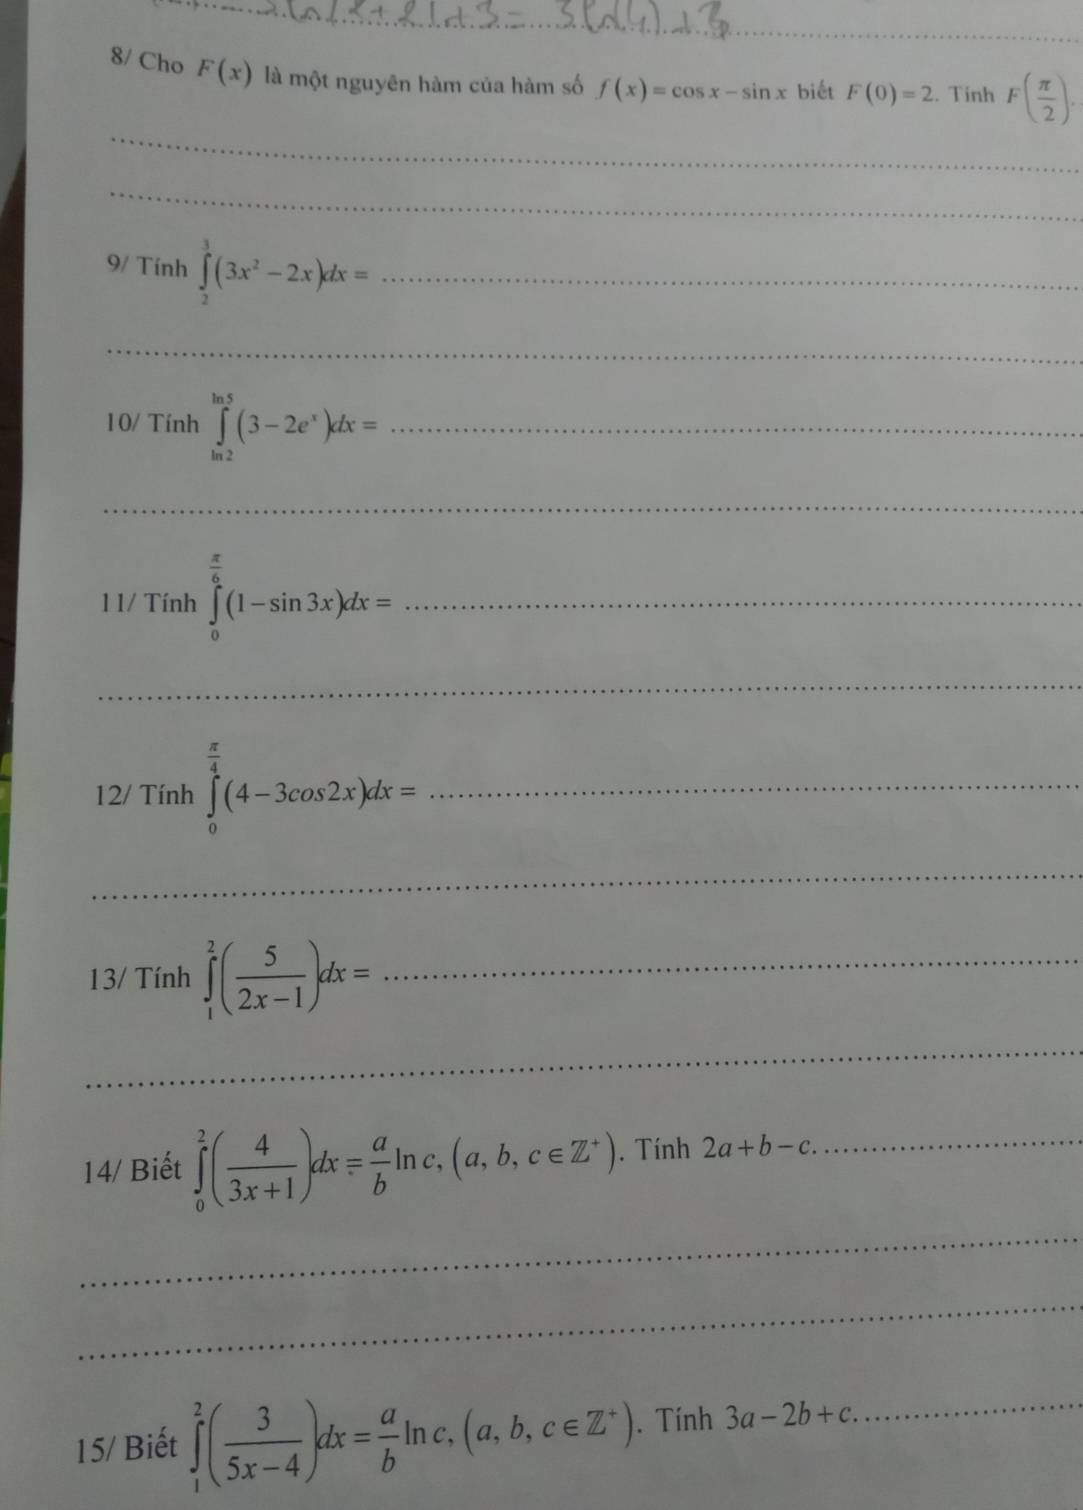 = 3
8/ Cho F(x) là một nguyên hàm của hàm số f(x) = cos x − sin x biết F(0) = 2. Tính F(π/2).
9/ Tính ∫₂³ (3x² − 2x)dx =
10/ Tính ∫_{ln 2}^{ln 5} (3 − 2eˣ)dx =
11/ Tính ∫₀^{π/6} (1 − sin 3x)dx =
12/ Tính ∫₀^{π/4} (4 − 3cos2x)dx =
13/ Tính ∫₁² (5/(2x − 1))dx =
14/ Biết ∫₀² (4/(3x + 1))dx = a/b ln c, (a, b, c ∈ ℤ⁺). Tính 2a + b − c.
15/ Biết ∫₁² (3/(5x − 4))dx = a/b ln c, (a, b, c ∈ ℤ⁺). Tính 3a − 2b + c.